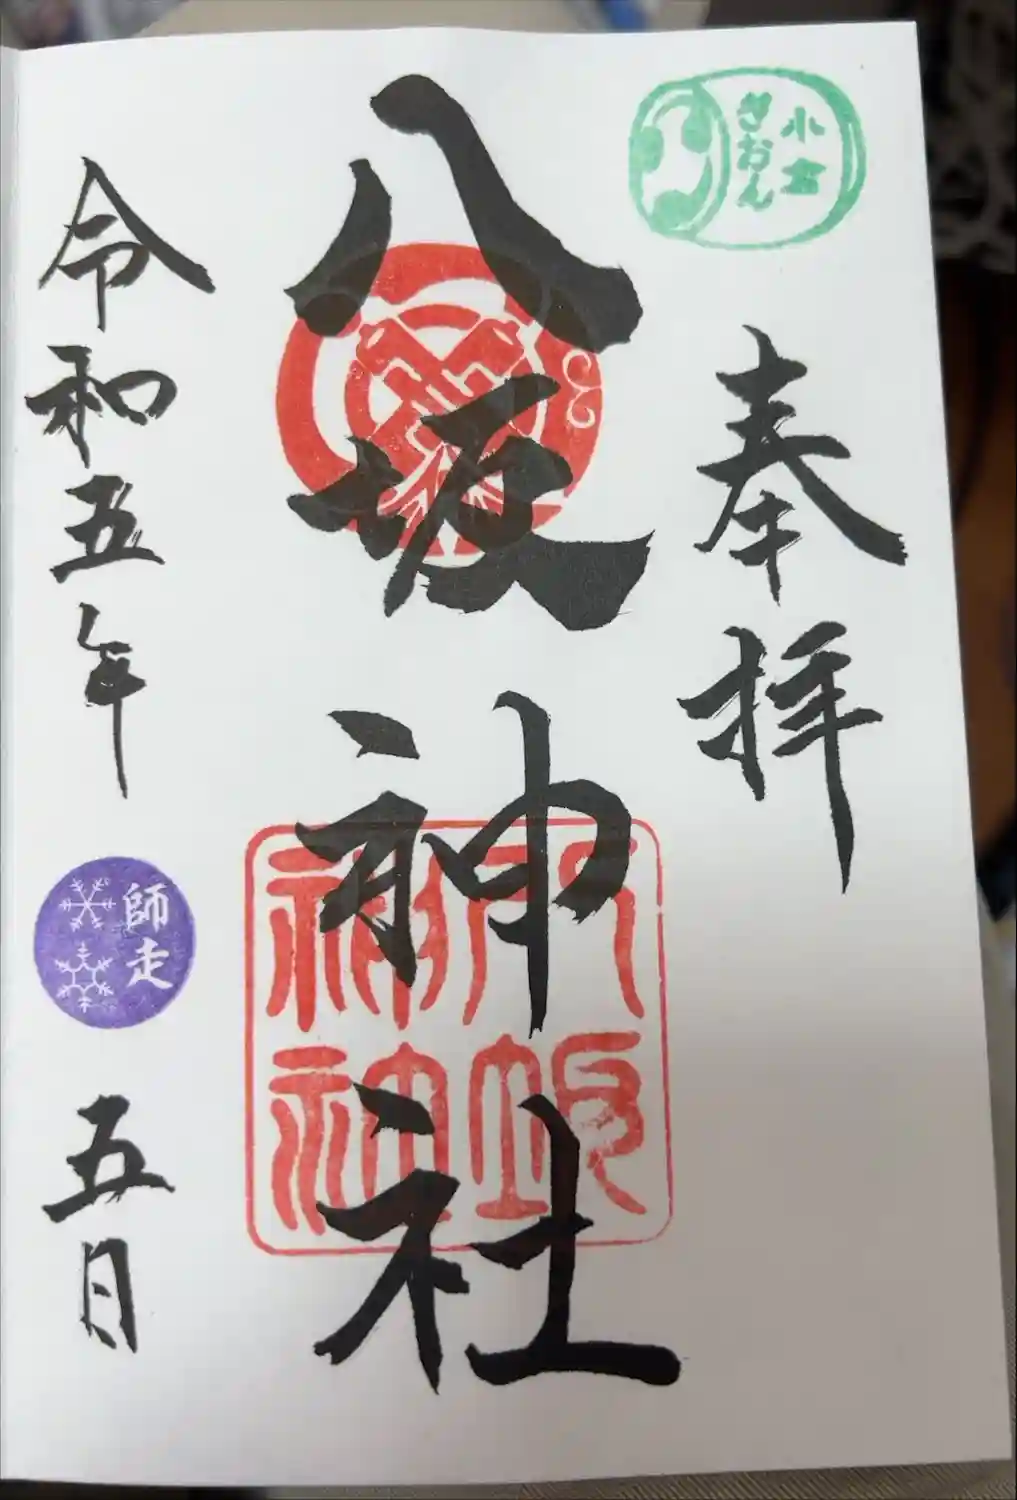 小倉
ぎおん
奉拝
八坂神社
八坂
神社
令和五年
師走
五日